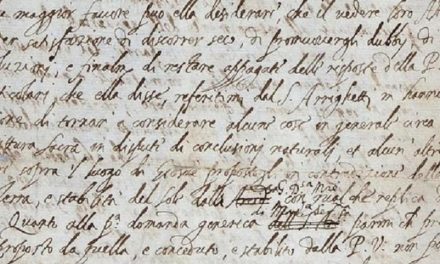 maggior favore può ella desiderare, che il vedere loro
satisfazione di discorrer seco, di promuovergli dubbij, di
luzioni, e finalm. di restare appagate delle risposte della P.
ticolari, che ella disse, referitimi dal S. Arrighetti m' hanno
one di tornar a considerare alcune cose in generale circa
ittura sacra in dispute di conclusioni naturali, et alcun' altre
sopra 'l luogo di Giosue propostogli, in contradizione della
erra, e stabilità del Sole dalla con qualche replica
Quanto alla p.ª domanda generica di parmi che pr
proposto da quella, e conceduto, e stabilito dalla P. V. non